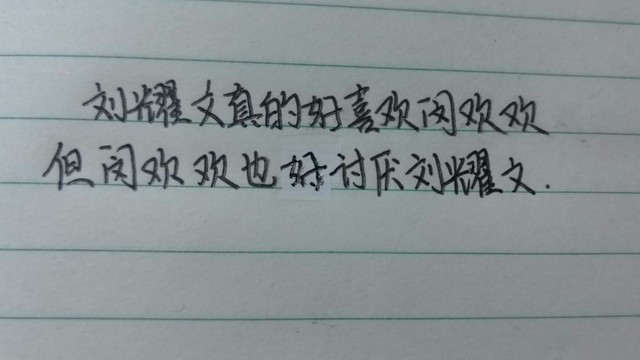 刘耀文真的好喜欢闵欢欢
但闵欢欢也好讨厌刘耀文.